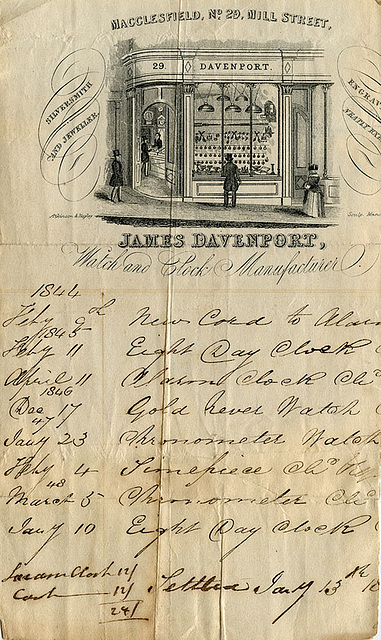 MACCLESFIELD, No 29, MILL STREET,
29. DAVENPORT.
SILVERSMITH
AND JEWELLER.
ENGRAV
JAMES DAVENPORT,
Watch and Clock Manufacturer.
1844
Feby 9th New Cord to Alarm
1845
Feby 11 Eight Day Clock
April 11 Alarm Clock Cld
1846
Dec 17 Gold Lever Watch
47
Jany 23 Chronometer Watch
Feby 4 Timepiece Cld
48
March 5 Chronometer Cld
Jany 10 Eight Day Clock
Alarm Clock 12/
Cash 12/
24/
Settled Jany 13th 18